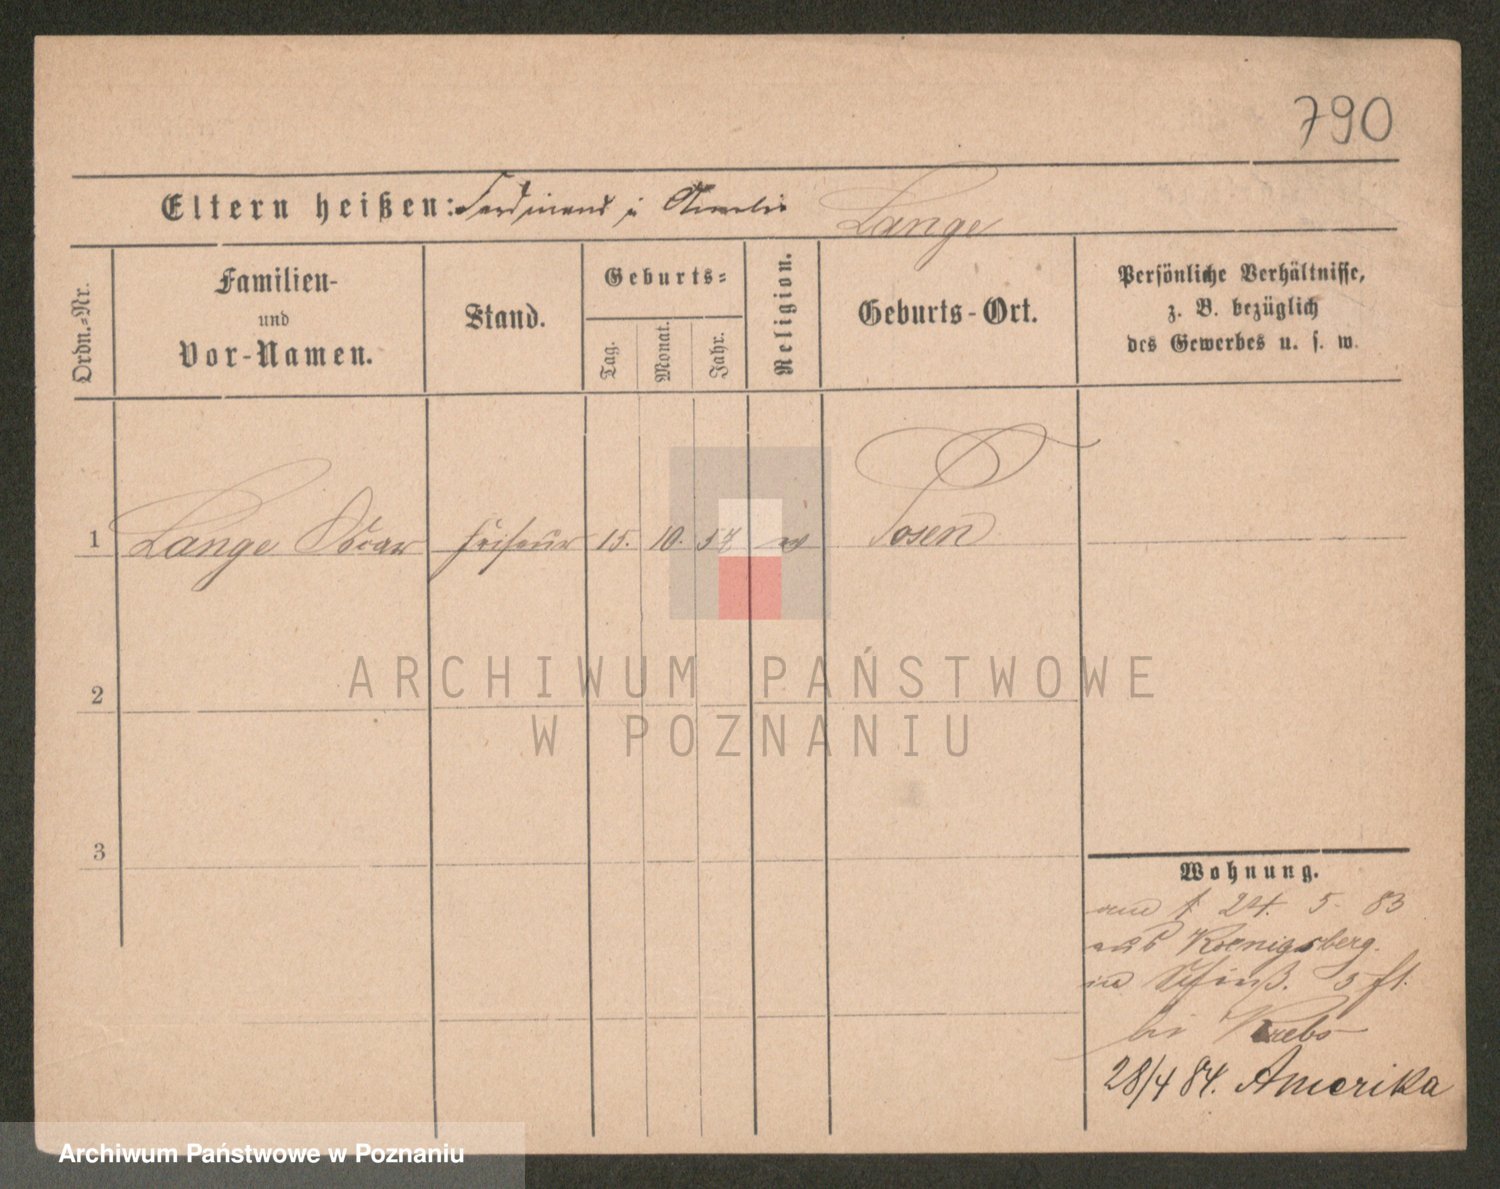 790
Eltern heißen: Ferdinand u Amalie Lange
Ordn.-Nr.
Familien-
und
Vor-Namen.
Stand.
Geburts-
Tag.
Monat.
Jahr.
Religion.
Geburts-Ort.
Persönliche Verhältnisse,
z. B. bezüglich
des Gewerbes u. s. w.
1 Lange Oscar Friseur 15. 10. 57 Posen
2
3
Wohnung.
24. 5. 83
aus Koenigsberg.
in 3
bei Krebs
28/4 84. Amerika
ARCHIWUM PAŃSTWOWE
W POZNANIU
Archiwum Państwowe w Poznaniu